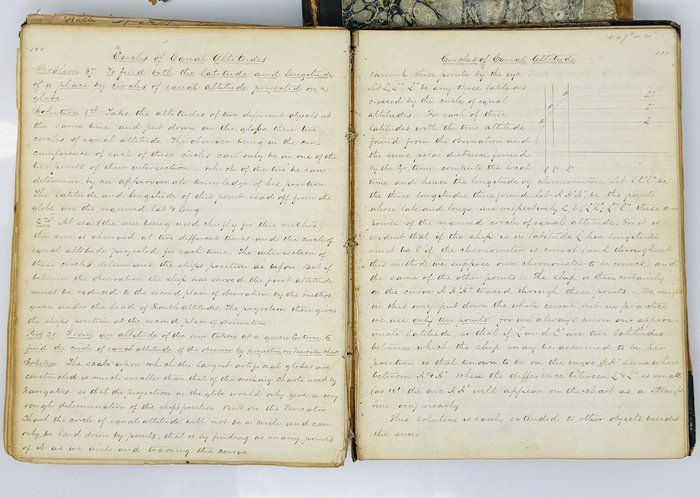 Circles of Equal Altitudes
Problem 27 To find both the latitude and longitude
of a place by circles of equal altitude projected on a
globe
Solution 1st Take the altitudes of two different objects at
the same time and put down on the globe their two
circles of equal altitude. The observer being in the cir-
cumference of each of these circles can only be in one of the
two points of their intersection - which of the two he can
determine by an approximate knowledge of his position.
The latitude and longitude of this point read off from the
globe are the required Lat & Long
2nd At sea (the sun being used chiefly for this method)
the sun is observed at two different times and the circles of
equal altitude projected for each time. The intersection of
these circles determines the ship's position as before. But if
between the observations the ship has moved the first altitude
must be reduced to the second place of observation by the method
given under the head of Double Altitudes. The projection then gives
the ship's position at the second place of observation
Prob 28. From an altitude of the sun taken at a given Gr. time to
find the circle of equal altitude of the observer by projection on Mercator's Chart
Solution The scale upon which the largest artificial globes are
constructed is much smaller than that of the working charts used by
Navigators, so that the projection on the globe would only give a very
rough determination of the ship's position. But on the Mercator
Chart the circle of equal altitude will not be a circle and can
only be laid down by points, that is by finding as many points
of it as we wish and tracing the curve
Circles of Equal Altitude
111
through these points by the eye
Let L, L', L'' be any three latitudes
crossed by the circle of equal
altitudes. For each of these
latitudes with the true altitude
found from the observation and
the sun's polar distance found
by the Gr. time, compute the local
time and hence the longitude by chronometer. Let
the three longitudes thus found. Let A A' A'' be the points
whose lats and longs are respectively these are
points of the required circle of equal altitude. For it is
evident that if the ship is in latitude L her longitude
must be l (if the chronometer is correct, and throughout
this method we suppose our chronometer to be correct), and
the same of the other points. The ship is then certainly
on the curve A A' A'' traced through these points. We might
in this way put down the whole curve, but in practice
we use only two points, for we always know our approx-
imate latitude, so that if L and L' are two latitudes
between which the ship may be assumed to be her
position is that known to be on the curve A A' some where
between A & A'. When the difference between L & L' is small
(as 10') the arc A A' will appear on the chart as a straight
line very nearly
This solution is easily extended to other objects besides
the sun.